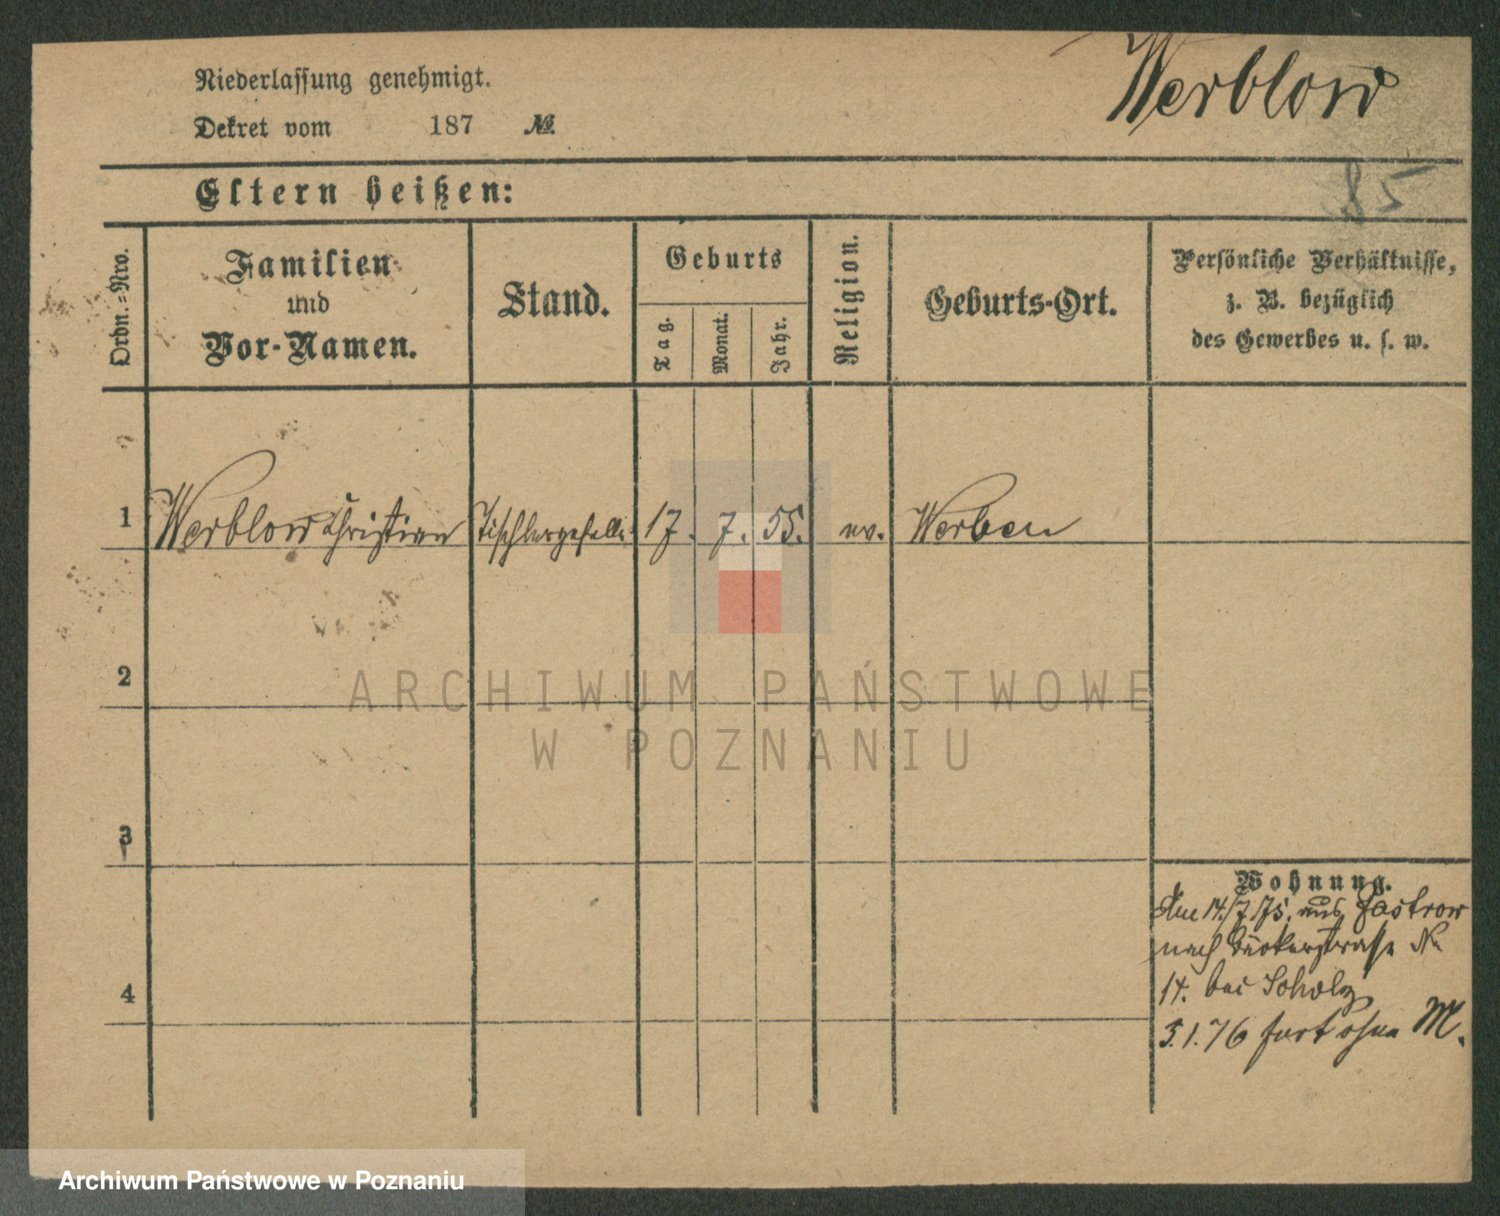 Werblow
Niederlassung genehmigt.
Dekret vom 187 №
85
Eltern heißen:
Ordn.=Nro.
Familien
und
Vor-Namen.
Stand.
Geburts
Tag.
Monat.
Jahr.
Religion.
Geburts-Ort.
Persönliche Verhältnisse,
z. B. bezüglich
des Gewerbes u. s. w.
1 Werblow Christian Tischlergeselle 17. 7. 55. ev. Werben
2
3
4
Wohnung.
Am 14/7 75. aus Jastrow
nach Bäckerstrasse No
14. bei Scholz
3.1.76 fort ohne M.
ARCHIWUM PAŃSTWOWE
W POZNANIU
Archiwum Państwowe w Poznaniu